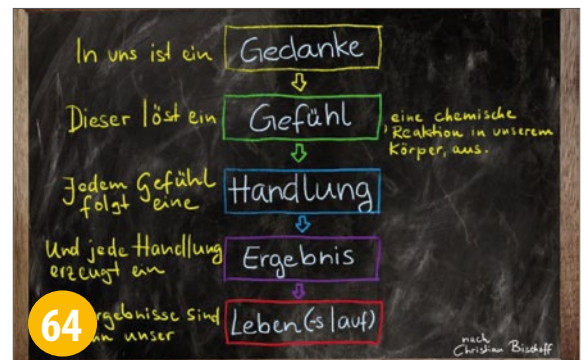 In uns ist ein Gedanke
Dieser löst ein Gefühl, eine chemische
Reaktion in unserem
Körper, aus.
Jedem Gefühl
folgt eine Handlung
Und jede Handlung
erzeugt ein Ergebnis
rgebnisse sind
unser Leben(-slauf)
64
nach
Christian Bischoff